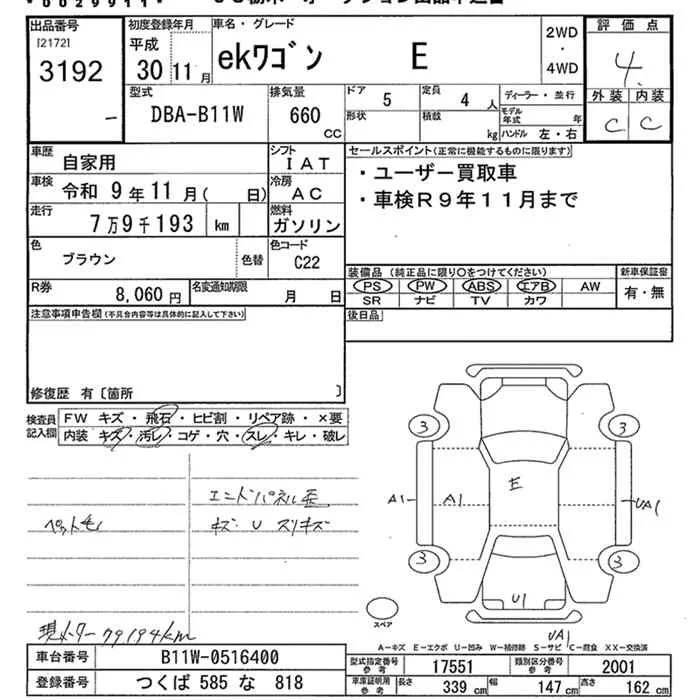 出品番号
[2172]
3192
初度登録年月
平成
30 11 月
車名・グレード
ekワゴン E
2WD
・
4WD
評価点
4
外装 内装
C C
型式
DBA-B11W
排気量
660 CC
ドア
5
定員
4 人
形状
積載
kg
ディーラー・並行
モデル年式 年
ハンドル 左・右
車歴
自家用
シフト
IAT
車検
令和 9年 11月( 日)
冷房
AC
走行
7万9千193 km
燃料
ガソリン
色
ブラウン
色替
色コード
C22
R券
8,060 円
名変通知期限
月 日
セールスポイント(正常に機能するものに限ります)
・ユーザー買取車
・車検R9年11月まで
装備品(純正品に限り○をつけてください)
PS PW ABS エアB AW
SR ナビ TV カワ
新車保証書
有・無
後日品
注意事項申告欄(不具合内容等は具体的に記入して下さい)
修復歴 有〔箇所 〕
検査員記入欄
FW キズ・飛石・ヒビ割・リペア跡・×要
内装 キズ・汚レ・コゲ・穴・スレ・キレ・破レ
ペット毛
エンドパネル歪
キズ U スリキズ
現メーター79194km
3
3
A1
A1
E
UA1
3
3
U1
UA1
スペア
A-キズ E-エクボ U-凹み W-補修跡 S-サビ C-腐食 XX-交換済
車台番号
B11W-0516400
登録番号
つくば 585 な 818
型式指定番号
参考
17551
類別区分番号
参考
2001
車庫証明用
参考
長さ
339 cm
幅
147 cm
高さ
162 cm